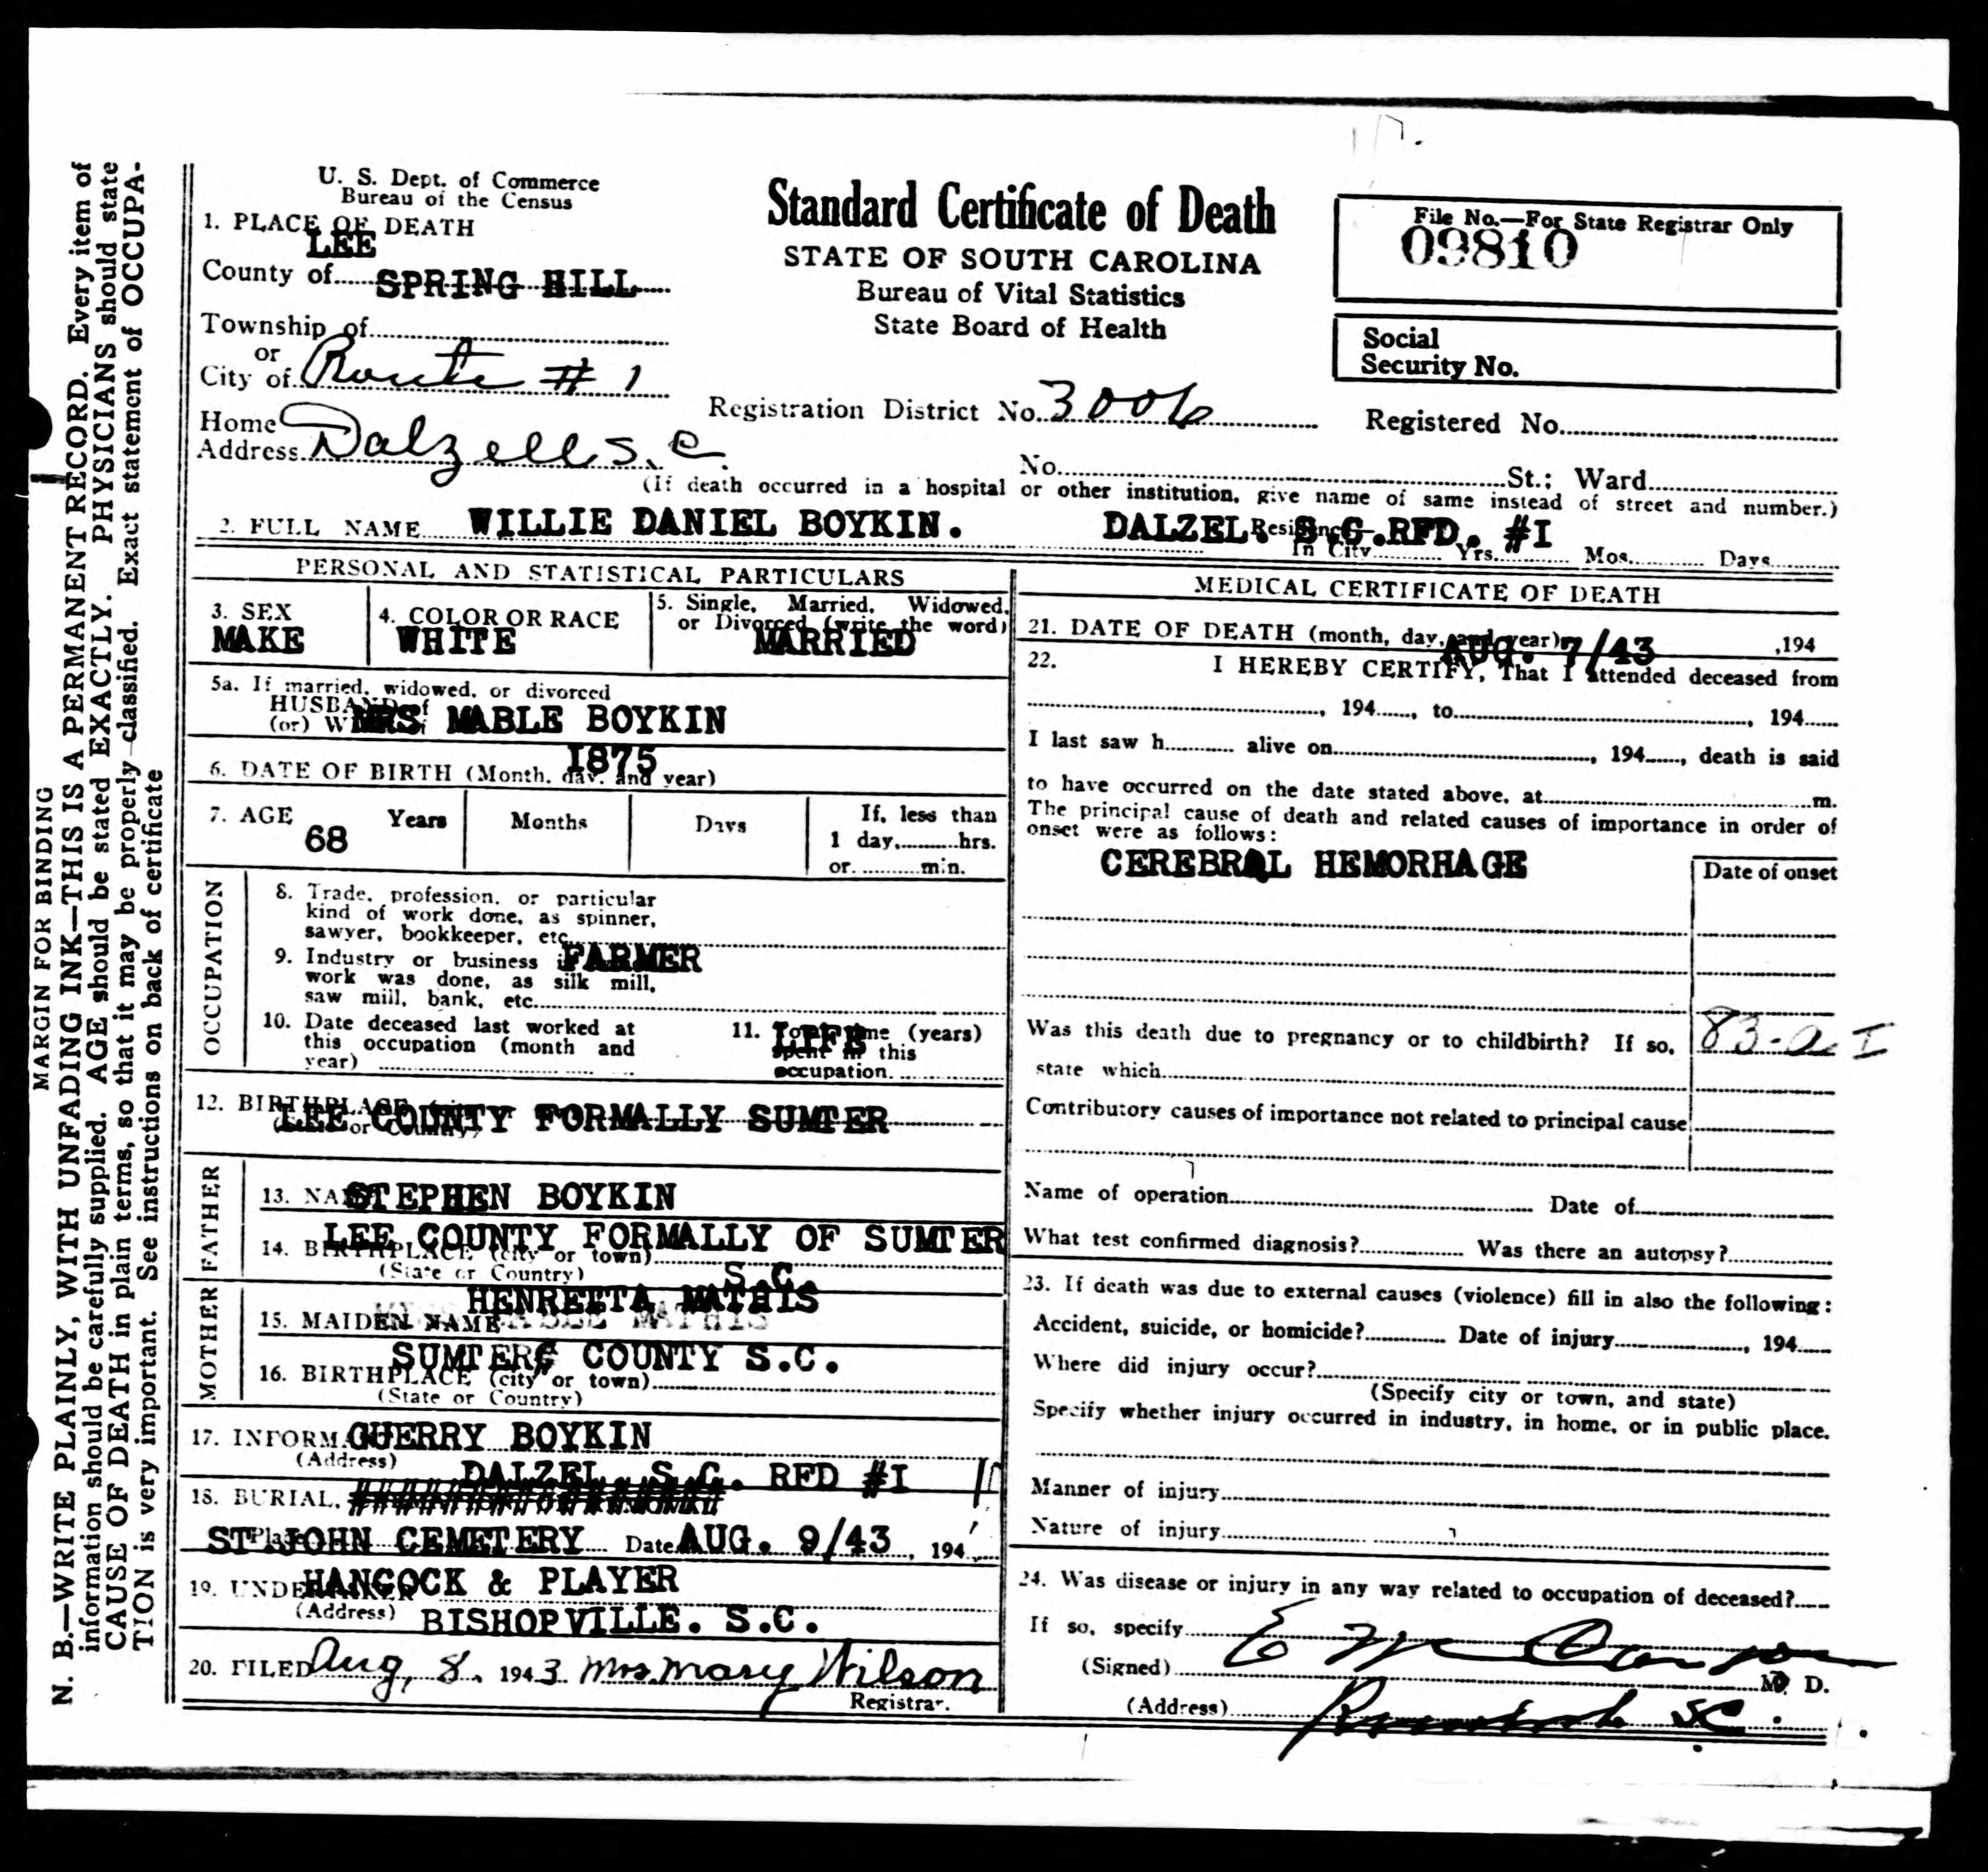 MARGIN FOR BINDING
N. B.—WRITE PLAINLY, WITH UNFADING INK—THIS IS A PERMANENT RECORD. Every item of
information should be carefully supplied. AGE should be stated EXACTLY. PHYSICIANS should state
CAUSE OF DEATH in plain terms, so that it may be properly classified. Exact statement of OCCUPA-
TION is very important. See instructions on back of certificate
U. S. Dept. of Commerce
Bureau of the Census
Standard Certificate of Death
STATE OF SOUTH CAROLINA
Bureau of Vital Statistics
State Board of Health
File No.—For State Registrar Only
09810
Social
Security No.
1. PLACE OF DEATH
LEE
County of SPRING HILL
Township of
or
City of Route # 1
Home
Address Dalzell S. C.
Registration District No. 3006
Registered No.
No. St.; Ward
(If death occurred in a hospital or other institution, give name of same instead of street and number.)
2. FULL NAME WILLIE DANIEL BOYKIN. DALZEL. S.C.RFD. #I
Residence
In City Yrs. Mos. Days
PERSONAL AND STATISTICAL PARTICULARS
3. SEX
MAKE
4. COLOR OR RACE
WHITE
5. Single, Married, Widowed,
or Divorced (write the word)
MARRIED
5a. If married, widowed, or divorced
HUSBAND of
(or) WIFE of MRS MABLE BOYKIN
1875
6. DATE OF BIRTH (Month, day, and year)
7. AGE 68 Years Months Days
If, less than
1 day, hrs.
or min.
OCCUPATION
8. Trade, profession, or particular
kind of work done, as spinner,
sawyer, bookkeeper, etc.
9. Industry or business in FARMER
work was done, as silk mill,
saw mill, bank, etc.
10. Date deceased last worked at
this occupation (month and
year)
11. Total time (years)
LIFE
spent in this
occupation.
12. BIRTHPLACE
LEE COUNTY FORMALLY SUMTER
FATHER
13. NAME STEPHEN BOYKIN
LEE COUNTY FORMALLY OF SUMTER
14. BIRTHPLACE (city or town)
(State or Country) S.C.
MOTHER
HENRETTA MATHIS
15. MAIDEN NAME
SUMTER COUNTY S.C.
16. BIRTHPLACE (city or town)
(State or Country)
17. INFORMANT GUERRY BOYKIN
(Address) DALZEL. S.C. RFD #I
18. BURIAL,
Place ST JOHN CEMETERY Date AUG. 9/43, 194
19. UNDERTAKER HANCOCK & PLAYER
(Address) BISHOPVILLE. S.C.
20. FILED Aug, 8. 1943. Mrs. Mary Wilson
Registrar.
MEDICAL CERTIFICATE OF DEATH
21. DATE OF DEATH (month, day, and year) AUG. 7/43 ,194
22. I HEREBY CERTIFY, That I attended deceased from
, 194 , to , 194
I last saw h alive on , 194 , death is said
to have occurred on the date stated above, at m.
The principal cause of death and related causes of importance in order of
onset were as follows:
CEREBRAL HEMORHAGE
Date of onset
Was this death due to pregnancy or to childbirth? If so, 83-a I
state which
Contributory causes of importance not related to principal cause
Name of operation Date of
What test confirmed diagnosis? Was there an autopsy?
23. If death was due to external causes (violence) fill in also the following:
Accident, suicide, or homicide? Date of injury , 194
Where did injury occur?
(Specify city or town, and state)
Specify whether injury occurred in industry, in home, or in public place.
Manner of injury
Nature of injury
24. Was disease or injury in any way related to occupation of deceased?
If so, specify
(Signed) E M M. D.
(Address) SC.